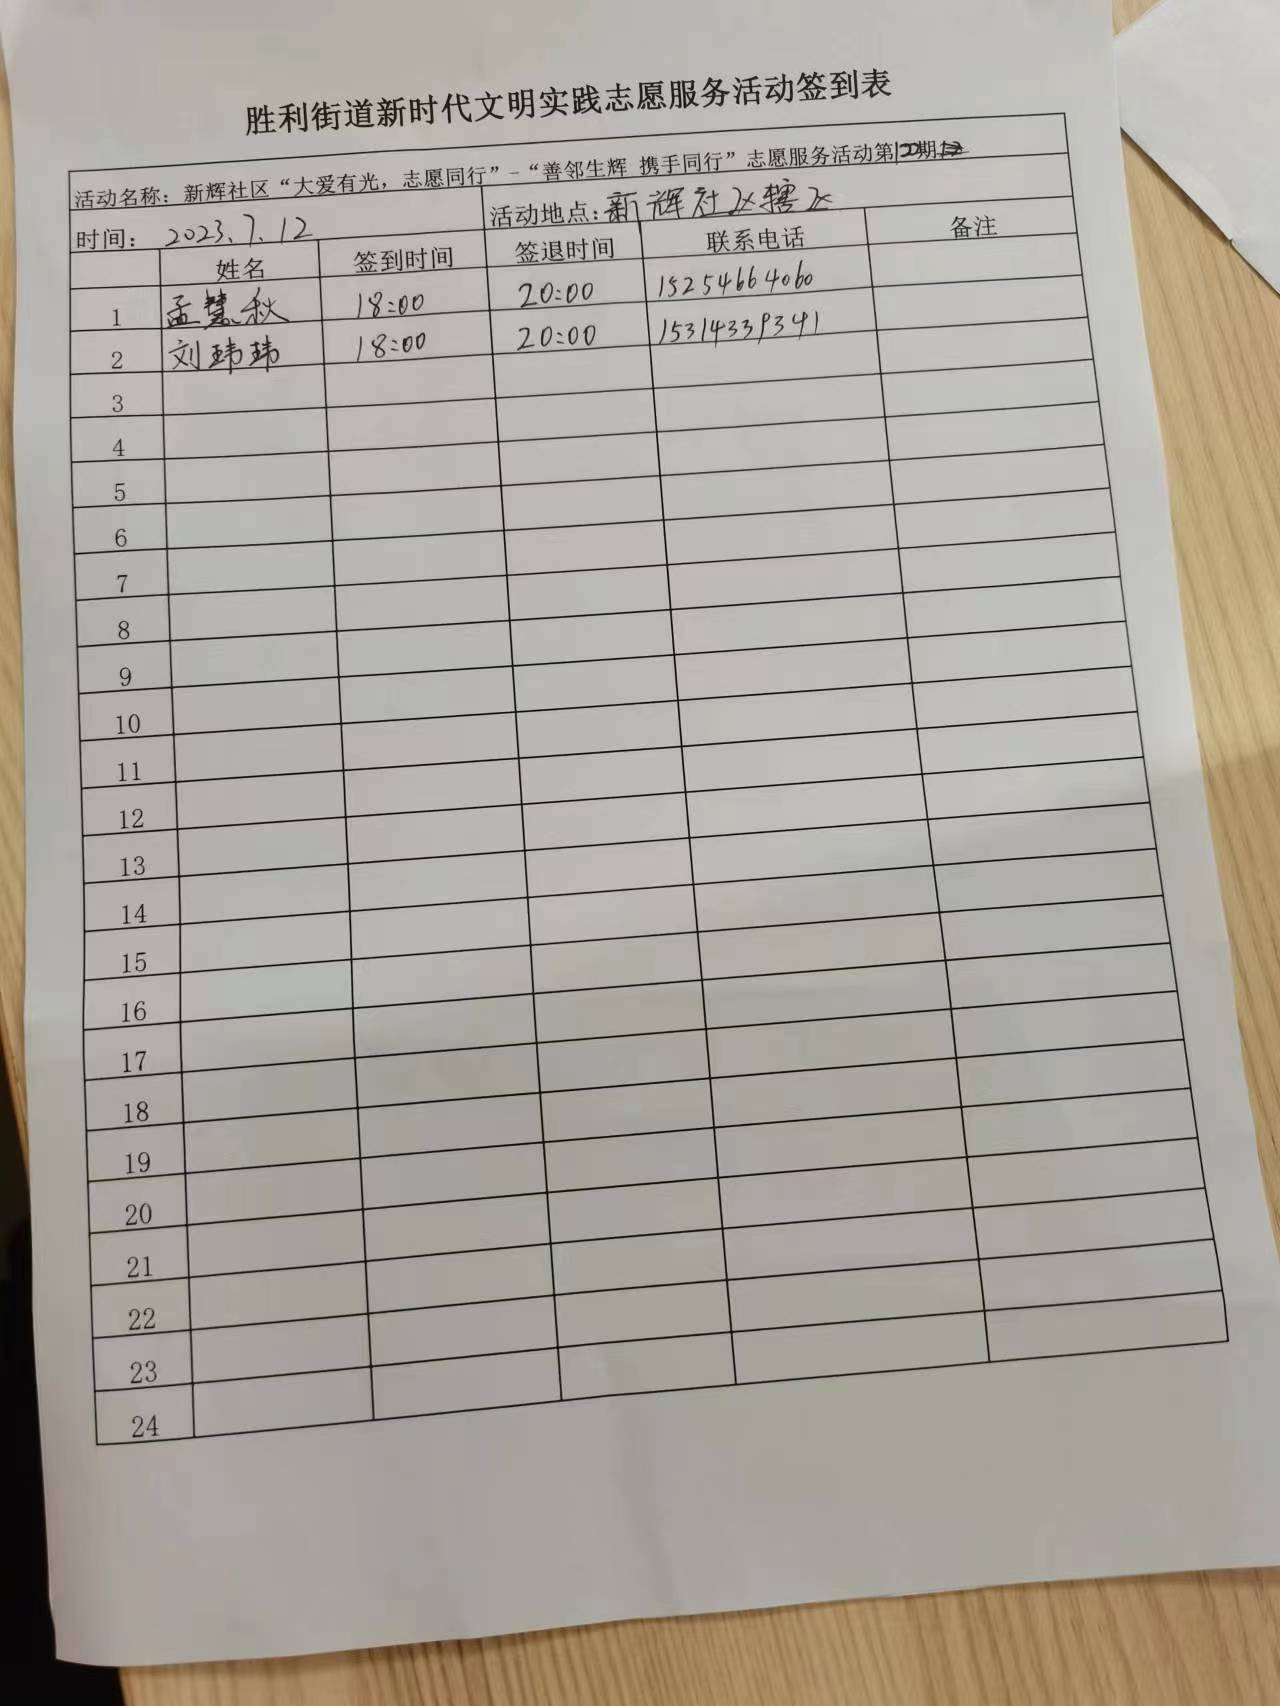 胜利街道新时代文明实践志愿服务活动签到表
活动名称：新辉社区“大爱有光，志愿同行”-“善邻生辉 携手同行”志愿服务活动第 期
时间： 2023.7.12 活动地点：新辉社区辖区
姓名 签到时间 签退时间 联系电话 备注
1 孟慧秋 18:00 20:00 15254664060
2 刘玮玮 18:00 20:00 15314339341
3
4
5
6
7
8
9
10
11
12
13
14
15
16
17
18
19
20
21
22
23
24